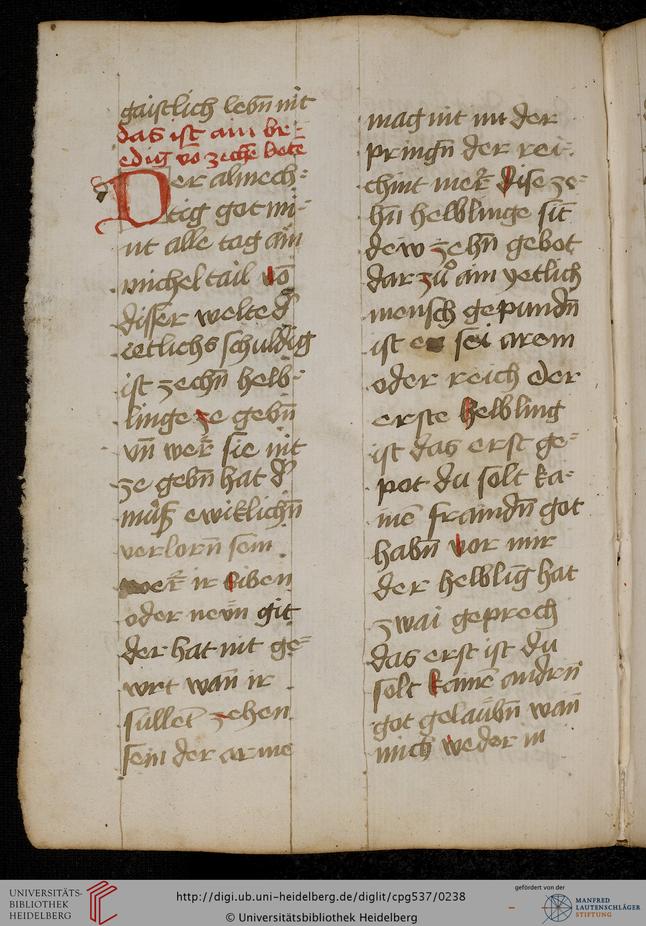 gaistlich lebn̄ nit
das ist ain br-
edig vō zechē bote
Der almech-
tig got mi-
nt alle tag ain
michel tail vō
disser welt ed̄
ietlichs schuldig
ist zechn̄ helb-
linge ze gebn̄
vn̄ wer̄ sie nit
ze gebn̄ hat d̄
muͦß ewiklichn̄
verlorn̄ sein
wer̄ ir siben
oder neẅn git
der hat nit ge-
wrt wan̄ ir
sullet̄ zehen
sein der arme
mag nit mi der
pringn̄ der rei-
chint mer̄ dise ze-
hn̄ helblinge sit̄
dew zehn̄ gebot
dar zuͦ ain yetlich
mensch gepundn̄
ist er sei arem
oder reich der
erste helbling
ist das erst ge-
pot du solt ka-
inē framdn̄ got
habn̄ vor mir
der helblīg hat
zwai geprech
das erst ist du
solt kainē andrn̄
got gelaubn̄ wan̄
mich weder in
UNIVERSITÄTS-
BIBLIOTHEK
HEIDELBERG
http://digi.ub.uni-heidelberg.de/diglit/cpg537/0238
© Universitätsbibliothek Heidelberg
gefördert von der
MANFRED
LAUTENSCHLÄGER
STIFTUNG